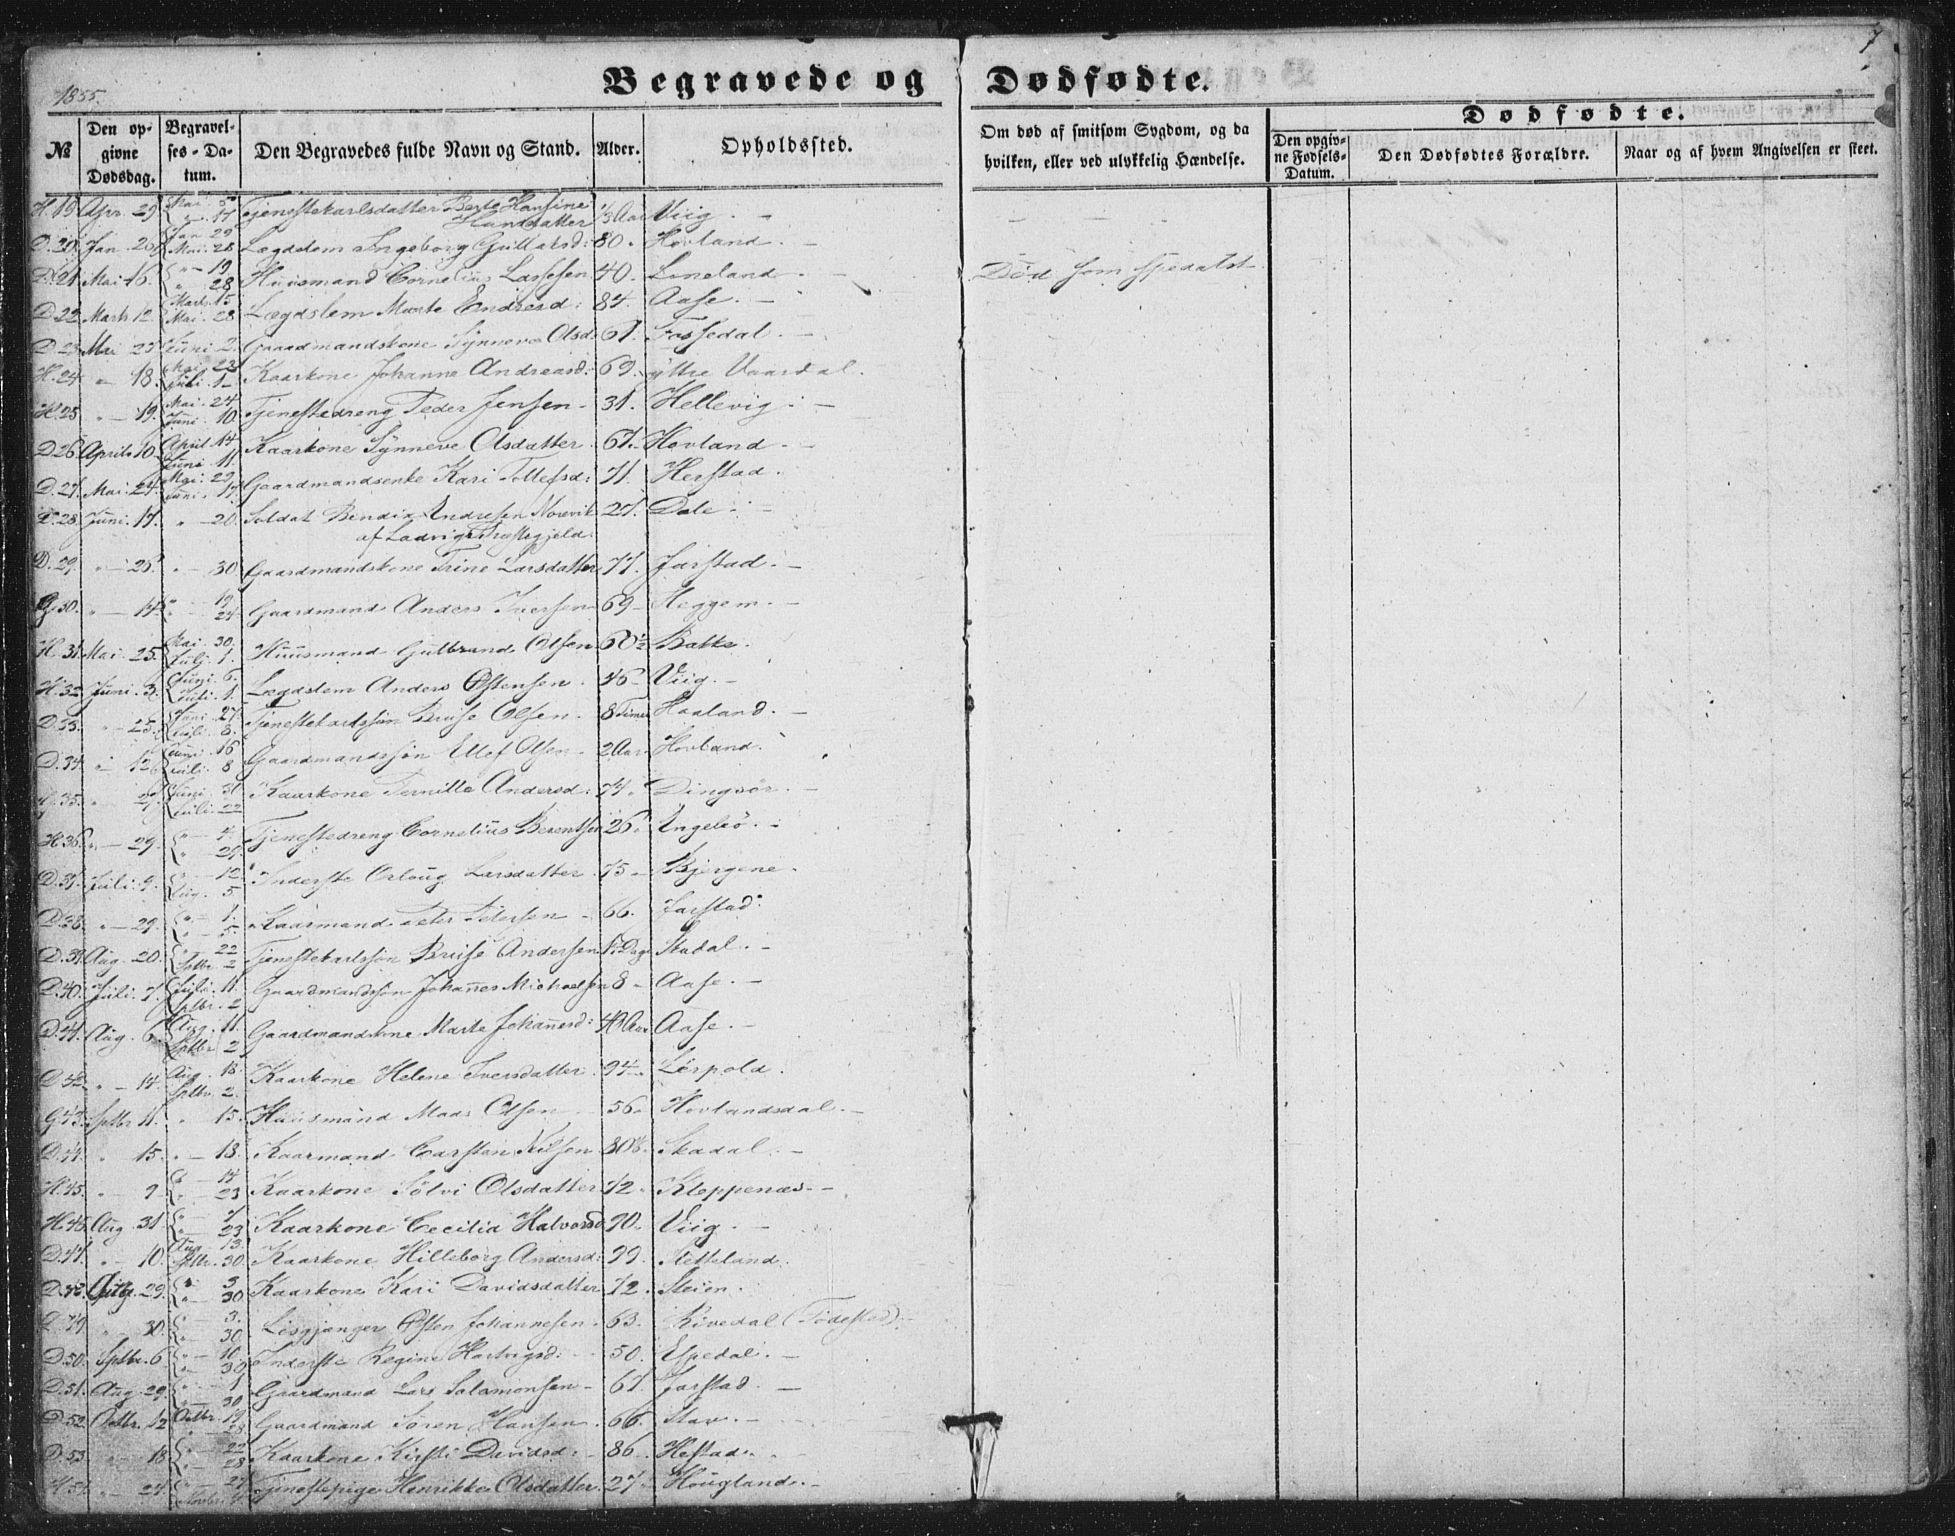 7
1855.
Begravede og Dødfødte.
№
Den op-
givne
Dødsdag.
Begravel-
ses-Da-
tum.
Den Begravedes fulde Navn og Stand.
Alder.
Opholdssted.
Om død af smitsom Sygdom, og da
hvilken, eller ved ulykkelig Hændelse.
Dødfødte.
Den opgiv-
ne Fødsels-
Datum.
Den Dødfødtes Forældre.
Naar og af hvem Angivelsen er skeet.
H. 19 Apr. 29 Mai 5 " 17 Tjenestekarlsdatter Berte Hansine Hansdatter 1/3 Aar Viig. -
D. 20. Jan. Jan 29 Mai. 28 Lægdslem Ingeborg 80. Hovland. -
D. 21. Mai 16. " 19 " 28 Huusmand Cornelius Lassesen 40. Loneland. - Død som spedalsk
D. 22 Marts 12. Marts 15 Mai. 28 Lægdslem Marte Endresd: 84. Aase. -
D. 23 Mai Juni 2. Gaardmandskone Synneve Olsd: 61. Fossedal. -
H. 24 " - 18. Mai 22 Juli 1 Kaarkone Johanne Andreasd: 69. yttre Vaardal.
H. 25 " - 19. Mai. 24 Juni. 10 Tjenestedreng Peder Jensen - 31. Hellevig. -
D. 26. Aprils 10 April. 14 Juni. 11. Kaarkone Synneve Olsdatter. 67. Hovland. -
D. 27. Mai. 24. Mai. 29 Juni. 17 Gaardmandsenke Kari Tollefsd: 71. Herstad.
D. 28. Juni. 17. " - 20. Soldat Bendix Andresen Norevik 27. Dale. -
af Ladvigs Præstegjeld.
D. 29 " - 26. " - 30 Gaardmandskone Trine Larsdatter 77. Jarstad. -
G. 30. " - 14. " 19 " 24 Gaardmand Anders Iversen 69 - Heggem. -
H. 31 Mai. 25. Mai. 30 Juli. 1. Huusmand Gulbrand Olsen 60½ Bakke.
H. 32 Juni. 3. Juni. 6. Juli. 1. Lægdslem Anders Østensen. 46 - Viig. -
D. 33. " - 25. Juni. 27 Juli. 8. Tjenestekarlssøn Bruse Olsen. 8 Timer Haaland. -
D. 34. " 12. Juni. 16 Juli. 8 Gaardmandssøn Ellef Olsen - 2 Aar. Hovland.
35. " 27. Juni. 30 Juli. 22 Kaarkone Pernille Andersd: 74. Dingsør. -
H. 36. " - 29. " - 4. " - 29. Tjenestedreng Cornelius Berentsen 26. Engelsø. -
D. 37. Juli. 9. " - 12 Aug. 5 Inderste Orloug Larsdatter. 75 - Bjergene.
D. 38. " - 29. " - 1. " - 5. Kaarmand Peter Petersen - 66. Jarstad.
D. 39. Aug. 20. " - 22 Sptbr. 2 Tjenestekarlssøn Bruse Andersen Dage Skadal. -
D. 40. Juli. 7. Juli. 11. Sptbr. 2 Gaardmandssøn Johannes Michaelsen 8 - Aase. -
D. 41. Aug. 6. Aug. 11. Sptbr 2 Gaardmandskone Marte Johannesd: 43 Aar Aase. -
D. 42 " - 14. Aug. 18. Sptbr. 2. Kaarkone Helene Iversdatter. 94 - Lérpold.
G. 43. Sptbr 11. " 15. Huusmand Mads Olsen 56. Hovlandsdal. -
D. 44. " 15. " - 18. Kaarmand Carstan Nilsen 80½. Skadal. -
H. 45. " 9 " - 14 " - 23 Kaarkone Sølvi Olsdatter. 72. Kleppenæs. -
H. 46. Aug. 31 " - 7 " - 23 Kaarkone Cecilia Halvorsd 90. Viig. -
D. 47. " - 10. Aug. 13. Sptbr. 30. Kaarkone Hilleborg Andersd: 99. Stetteland.
D. 48. Aug. 29. " - 3 " - 30 Kaarkone Kari Davidsdatter 72. Steien. -
D. 49 " 30. " - 3. " 30 Løsgjænger Østen Johannesen. 63. Rivedal (Fødested). -
D. 50. Sptbr. 6. " - 10 " - 30 Inderste Regine Hartvigsd: 50. Espedal. -
D. 51. Aug. 29. " - 1 " - 30. Gaardmand Lars Salamonsen - 67. Jarstad. -
D. 52. Octbr. 12 Octbr. 19 Gaardmand Søren Hansen. 66. Stav. -
D. 53. " 18 " - 22 " - 28 Kaarkone Kirsti Davidsd: - 86. Hestad. -
H. 54. " - 24. " - 29 Novbr. Tjenestepige Henrikke Olsdatter. 27 - Hougland. -